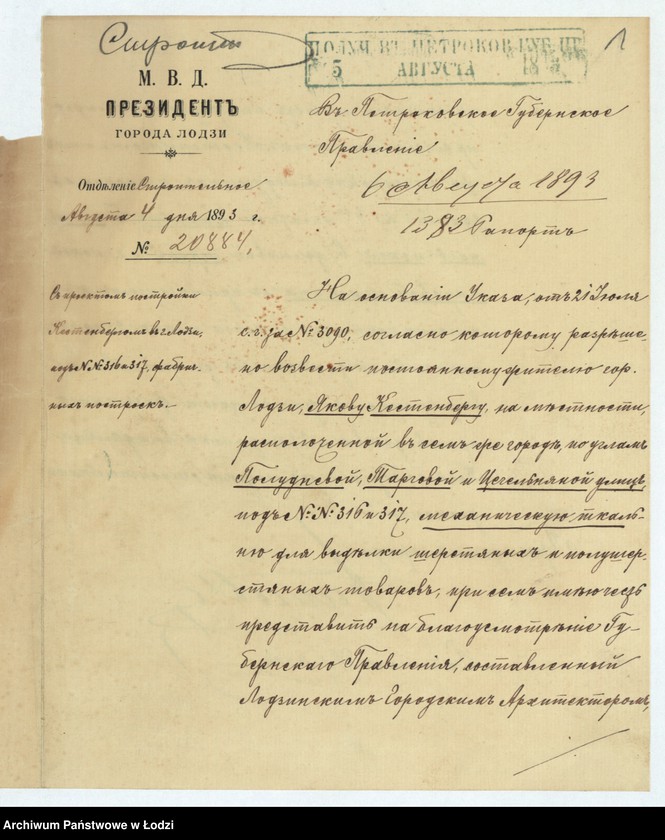 Строит
ПОЛУЧ. ВЪ ПЕТРОКОВ. ГУБ. ПР.
5 АВГУСТА 1893
1
М. В. Д.
ПРЕЗИДЕНТЪ
ГОРОДА ЛОДЗИ
Отдѣленіе Строительное.
Августа 4 дня 1893 г.
№ 20884.
Въ Петроковское Губернское
Правленіе
6 Августа 1893
1383 Рапортъ
Съ проектомъ постройки
Кестенбергомъ въ г. Лодзи,
подъ №№ 316 и 317, фабрич-
ныхъ построекъ.
На основаніи Указа, отъ 21 Іюля
с. г. за № 3090, согласно которому разрѣше-
но возвести постоянному жителю гор.
Лодзи, Якову Кестенбергу, на мѣстности,
расположенной въ семъ же городѣ, по угламъ
Полудневой, Тарговой и Цегельняной улицъ,
подъ №№ 316 и 317, механическую ткаль-
ню для выдѣлки шерстяныхъ и полушер-
стяныхъ товаровъ, при семъ имѣю честь
представить на благоусмотрѣніе Гу-
бернскаго Правленія, составленный
Лодзинскимъ Городскимъ Архитекторомъ,
Archiwum Państwowe w Łodzi